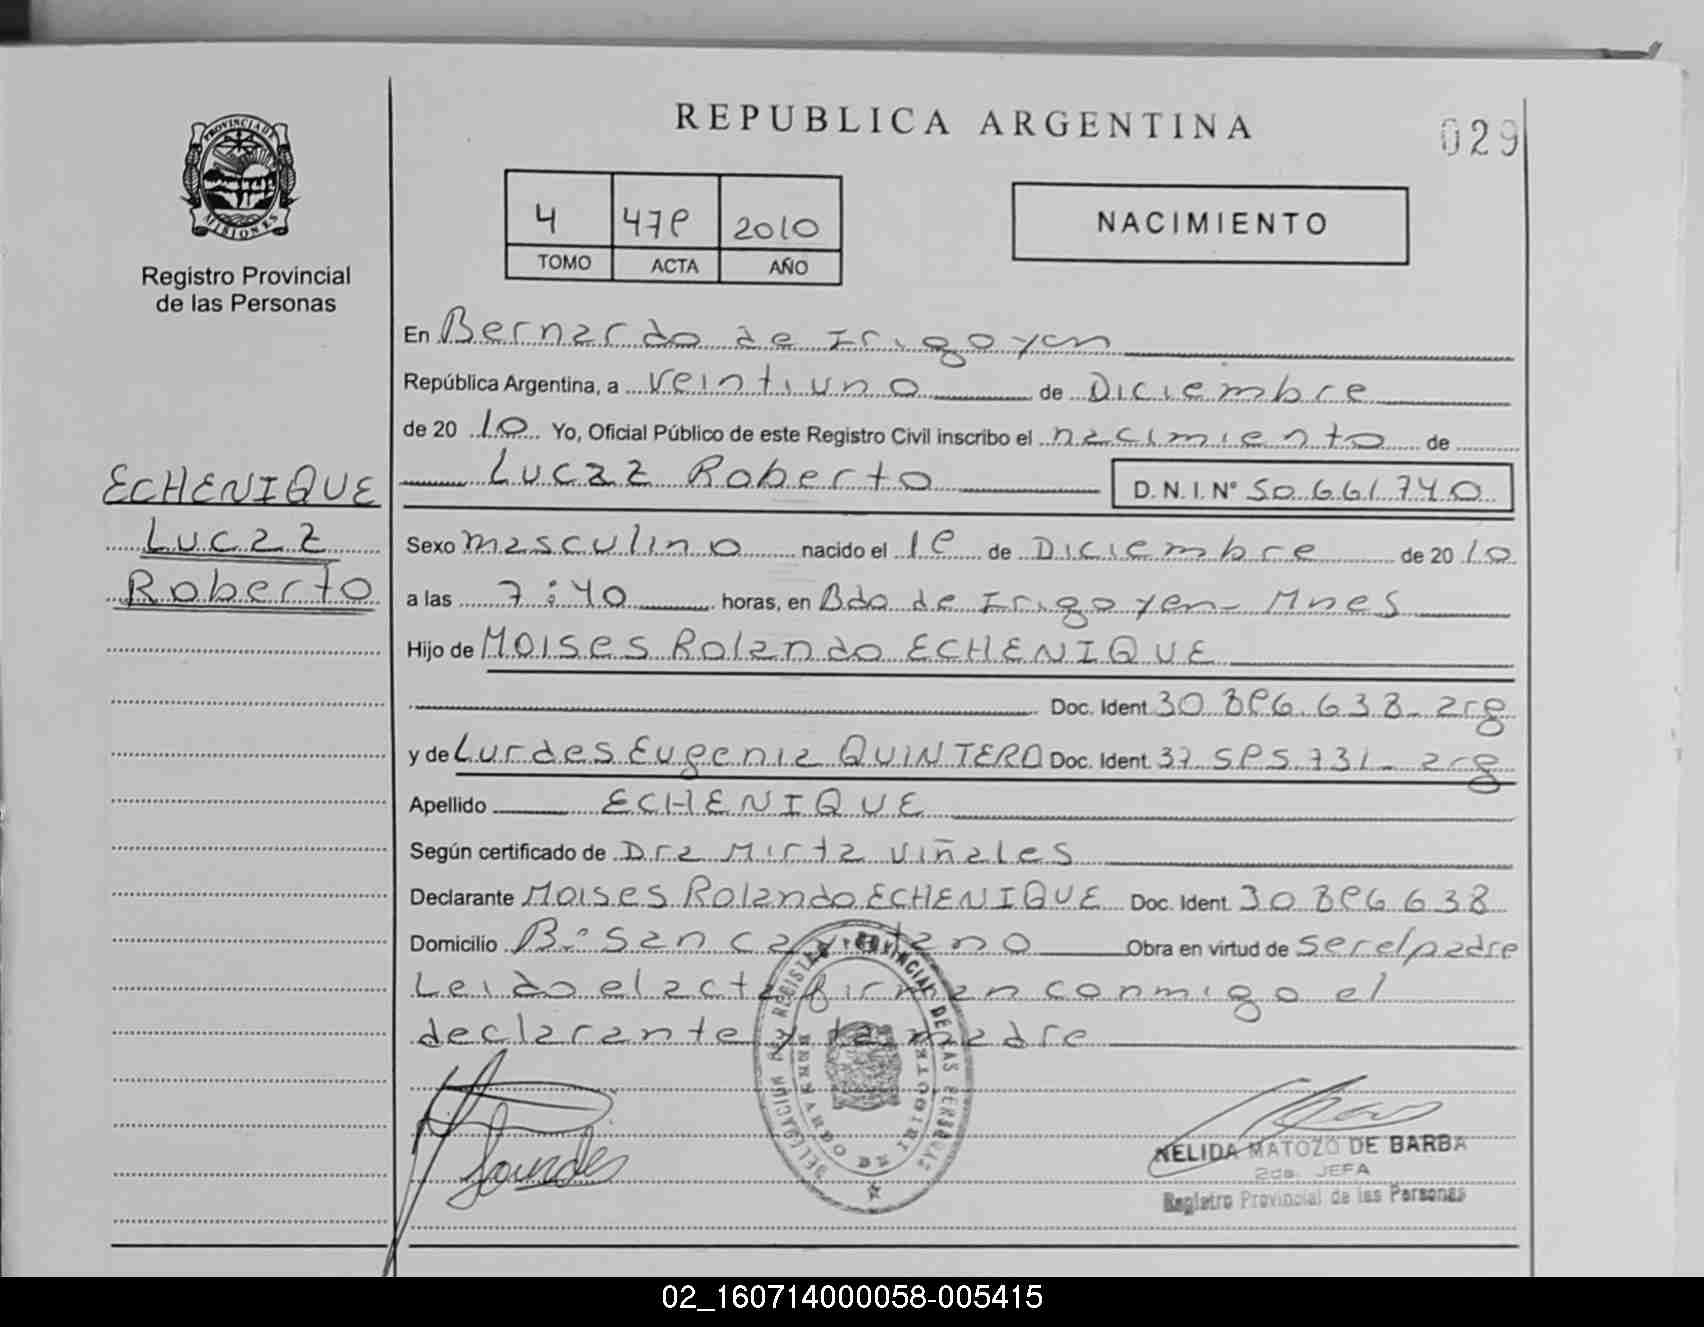 REPUBLICA ARGENTINA
029
PROVINCIA DE
MISIONES
Registro Provincial
de las Personas
4 479 2010
TOMO ACTA AÑO
NACIMIENTO
En Bernardo de Irigoyen
República Argentina, a veintiuno de Diciembre
de 20 10 Yo, Oficial Público de este Registro Civil inscribo el nacimiento de
ECHENIQUE
Lucaz
Roberto
Lucaz Roberto D.N.I. Nº 50.661.740
Sexo masculino nacido el 19 de Diciembre de 20 10
a las 7:40 horas, en Bdo de Irigoyen - Mnes
Hijo de Moises Rolando ECHENIQUE
Doc. Ident. 30.896.638 - arg
y de Lurdes Eugenia QUINTERO Doc. Ident. 37.595.731 - arg
Apellido ECHENIQUE
Según certificado de Dra Mirta Viñales
Declarante Moises Rolando ECHENIQUE Doc. Ident. 30.896.638
Domicilio Bº San Cayetano Obra en virtud de ser el padre
Leido el acta firman conmigo el
declarante y la madre
Lourdes
NELIDA MATOZO DE BARBA
2da. JEFA
Registro Provincial de las Personas
02_160714000058-005415